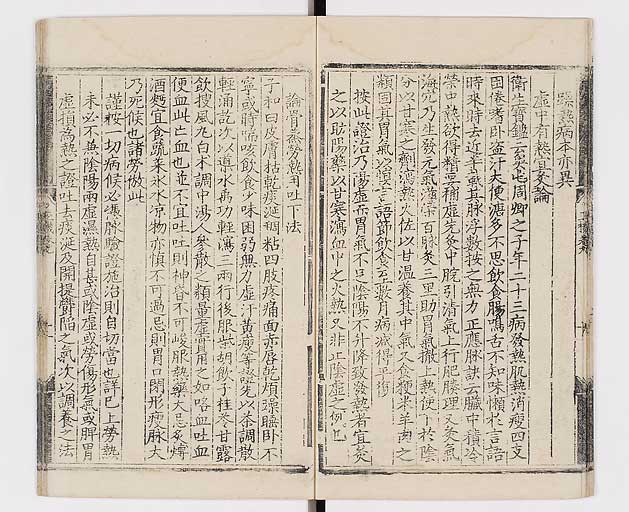 躁熱病本亦異
虛中有熱宜灸論
衛生寶鑑云周卿之子年二十三病發熱肌熱消瘦四支
困倦嗜卧盜汗大便溏多不思飲食腸鳴舌不知味懶於言語
時來時去近半載其脉浮數按之無力正應脉訣云臟中積冷
榮中熱欲得精要補虛先灸中脘引清氣上行肥腠理又灸氣
海乃生發元氣滋榮百脉灸三里助胃氣撤上熱使下於陰
分以甘寒之劑瀉熱火佐以甘溫養其中氣又食粳米羊肉之
類固其胃氣以慎言語節飲食云數月病減得平復
按此證治乃而胃氣不足陰陽不升降致發熱者宜灸
之以助陽藥以甘寒瀉血中之火熱又非止陰虛之例也
論骨蒸勞熱用吐下法
子和曰皮膚枯乾痰涎稠粘四肢疼痛面赤唇乾煩躁睡卧不
寧或時喘咳飲食少味困弱無力虛汗黃瘦等證先以茶調散
輕涌訖次以導水禹功輕瀉三兩行後服柴胡飲子桂苓甘露
飲搜風丸白术調中湯人參散之類量虛實用之如咯血吐血
便血此亡血也並不宜吐吐則神昏不可峻服熱藥大忌炙煿
酒麪宜食蔬菜氷水凉物亦慎不可過忌則胃口閉形瘦脉大
乃死候也諸勞倣此
謹按一切病候必憑脉驗證施治則自切當也詳已上勞熱
未必不兼陰陽兩虛濕熱自甚或陰虛或勞傷形氣或脾胃
虛損為熱之證吐去痰涎及開提欝陷之氣次以調養之法